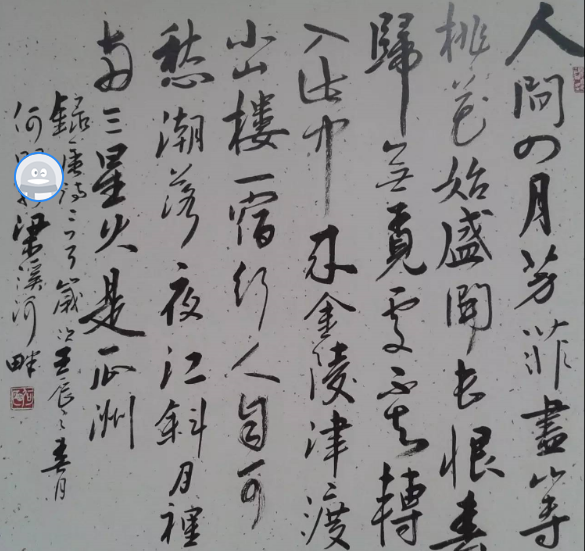 人間四月芳菲盡山寺
桃花始盛開長恨春
歸無覓處不知轉
入此中來金陵津渡
小山樓一宿行人自可
愁潮落夜江斜月裡
兩三星火是瓜洲
錄唐詩二首歲次壬辰之春月
何梁溪河畔